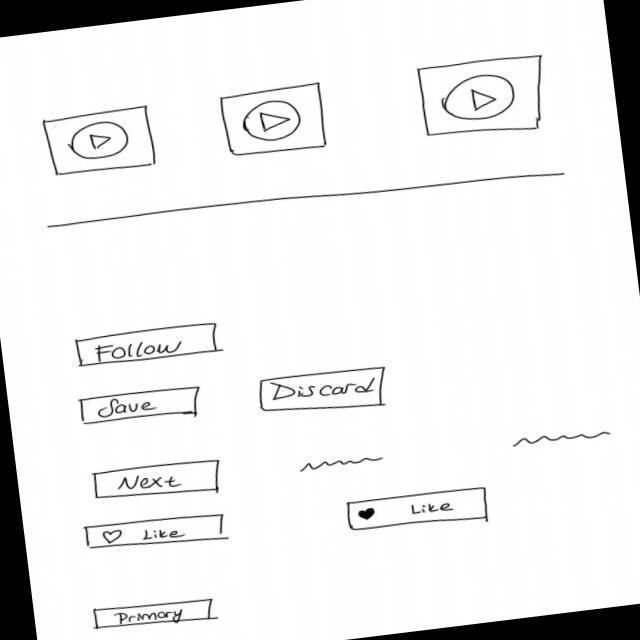 Follow
Save
Discard
Next
Like
Like
Primary